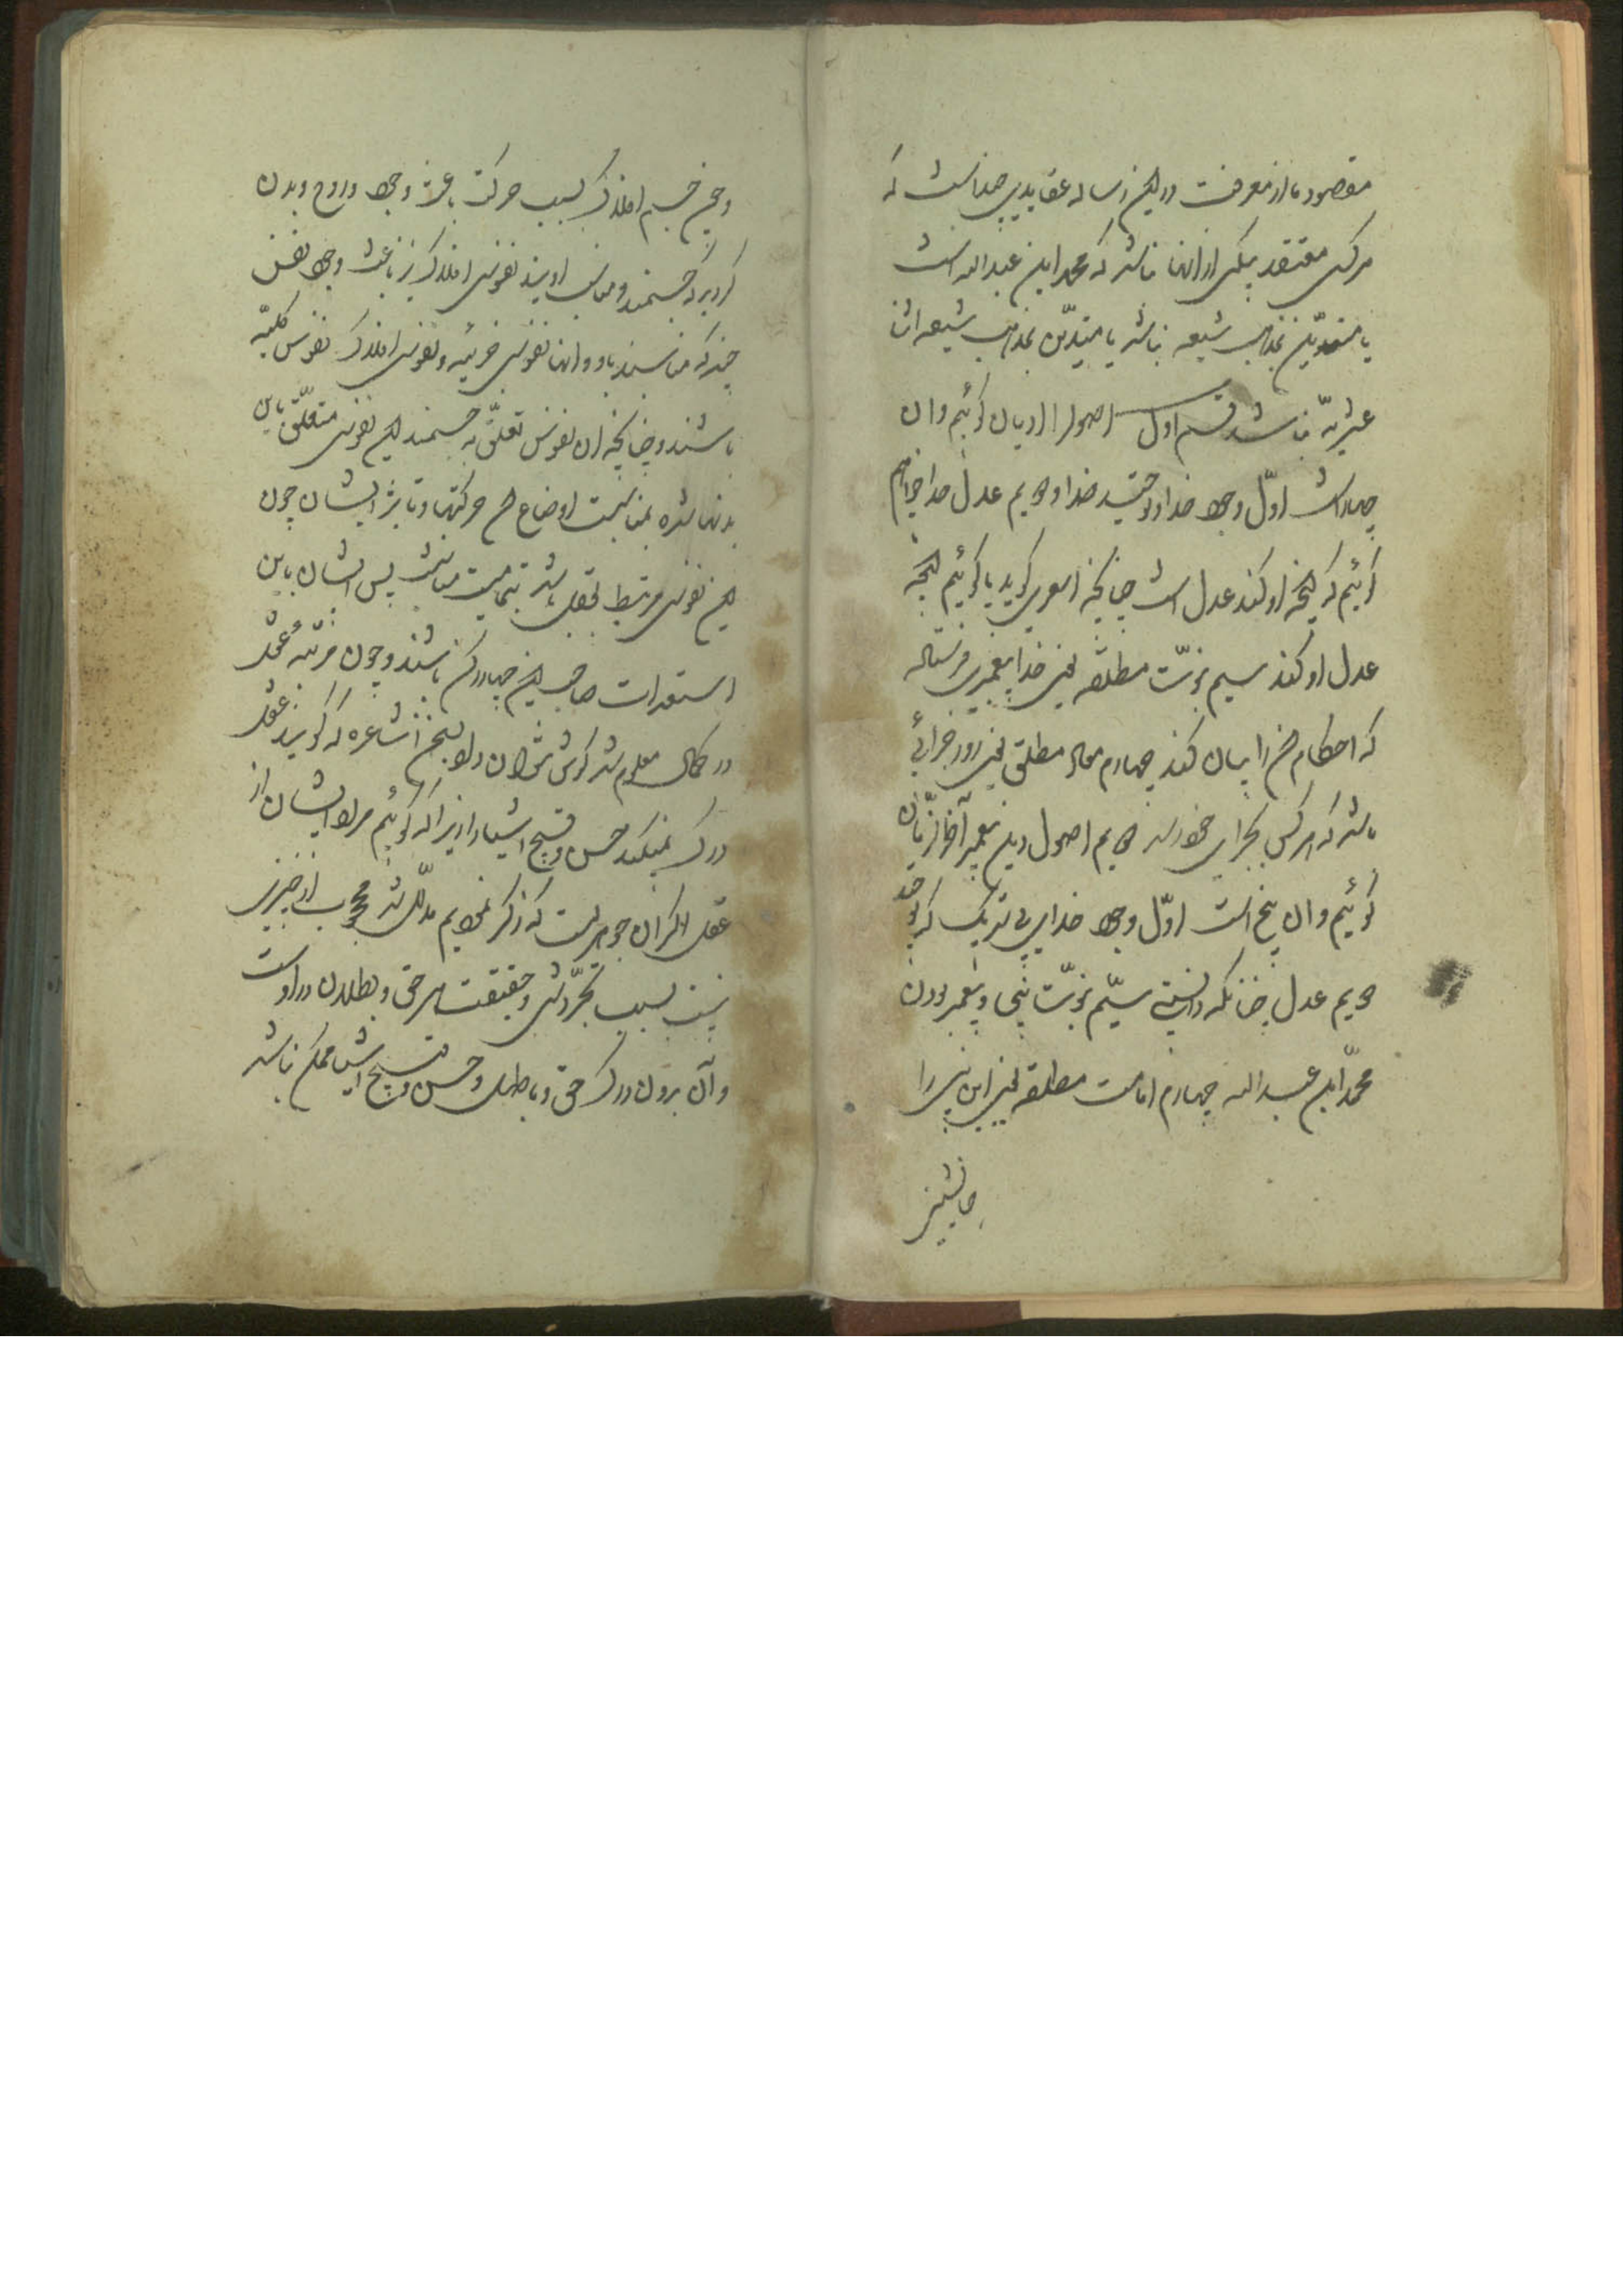 مقصود ما از معرفت در این رساله عقایدی چند است که
هر کس معتقد بیکی از انها نباشد که محمد ابن عبدالله است
یا متدین بمذهب شیعه نباشد یا متدین بمذهب شیعه اثنا
عشریه نباشد قسم اول اصول الادیان کوئیم و ان
چهار است اول وجود خدا و توحید خدا دویم عدل خدا خواهیم
کوئیم که انچه او کند عدل است چنانچه اشعری کوید یا کوئیم انچه
عدل او کند سیم نبوت مطلقه یعنی خدا پیغمبری فرستاده
که احکام را بیان کند چهارم معاد مطلق یعنی روز جزائی
باشد که هر کس بجزای خود رسد دویم اصول دین پیغمبر آخر الزمان
کوئیم و ان پنج است اول وجود خدای بی شریک که
دویم عدل چنانکه دانستی سیم نبوت نبی و پیغمبر بودن
محمد ابن عبدالله چهارم امامت مطلقه یعنی این نبی را
جانشینی
و چون جسم افلاک بسبب حرکت باعث وجود و روح و بدن
کردید که جسمند و مناسب اویند نفوس افلاک نیز باعث وجود نفس
چند که مناسبند باو و انها نفوس جزئیه و نفوس افلاک نفوس کلیه
باشند و چنانچه ان نفوس تعلق به جسمند این نفوس متعلق باین
بدنها شده بمناسبت اوضاع حرکتها و تاثیر ایشان چون
این نفوس مرتبط بعقل باشد پس انسان باین
استعدادات صاحب این چهار رکن باشند و چون مرتبه عقل
در کمال معلوم شد کوش مدار بسخن اشاعره که کویند عقل
درک نمیکند حسن و قبح اشیا را زیرا که کوئیم مراد ایشان از
عقل اگر ان جوهریست که ذکر نمودیم مدلل شد محجوب از چیزی
نیست بسبب تجردش و حقیقت هر حق و بطلان در اوست
و آن بدون درک حق و باطل و حسن و قبح اشیا ممکن نباشد